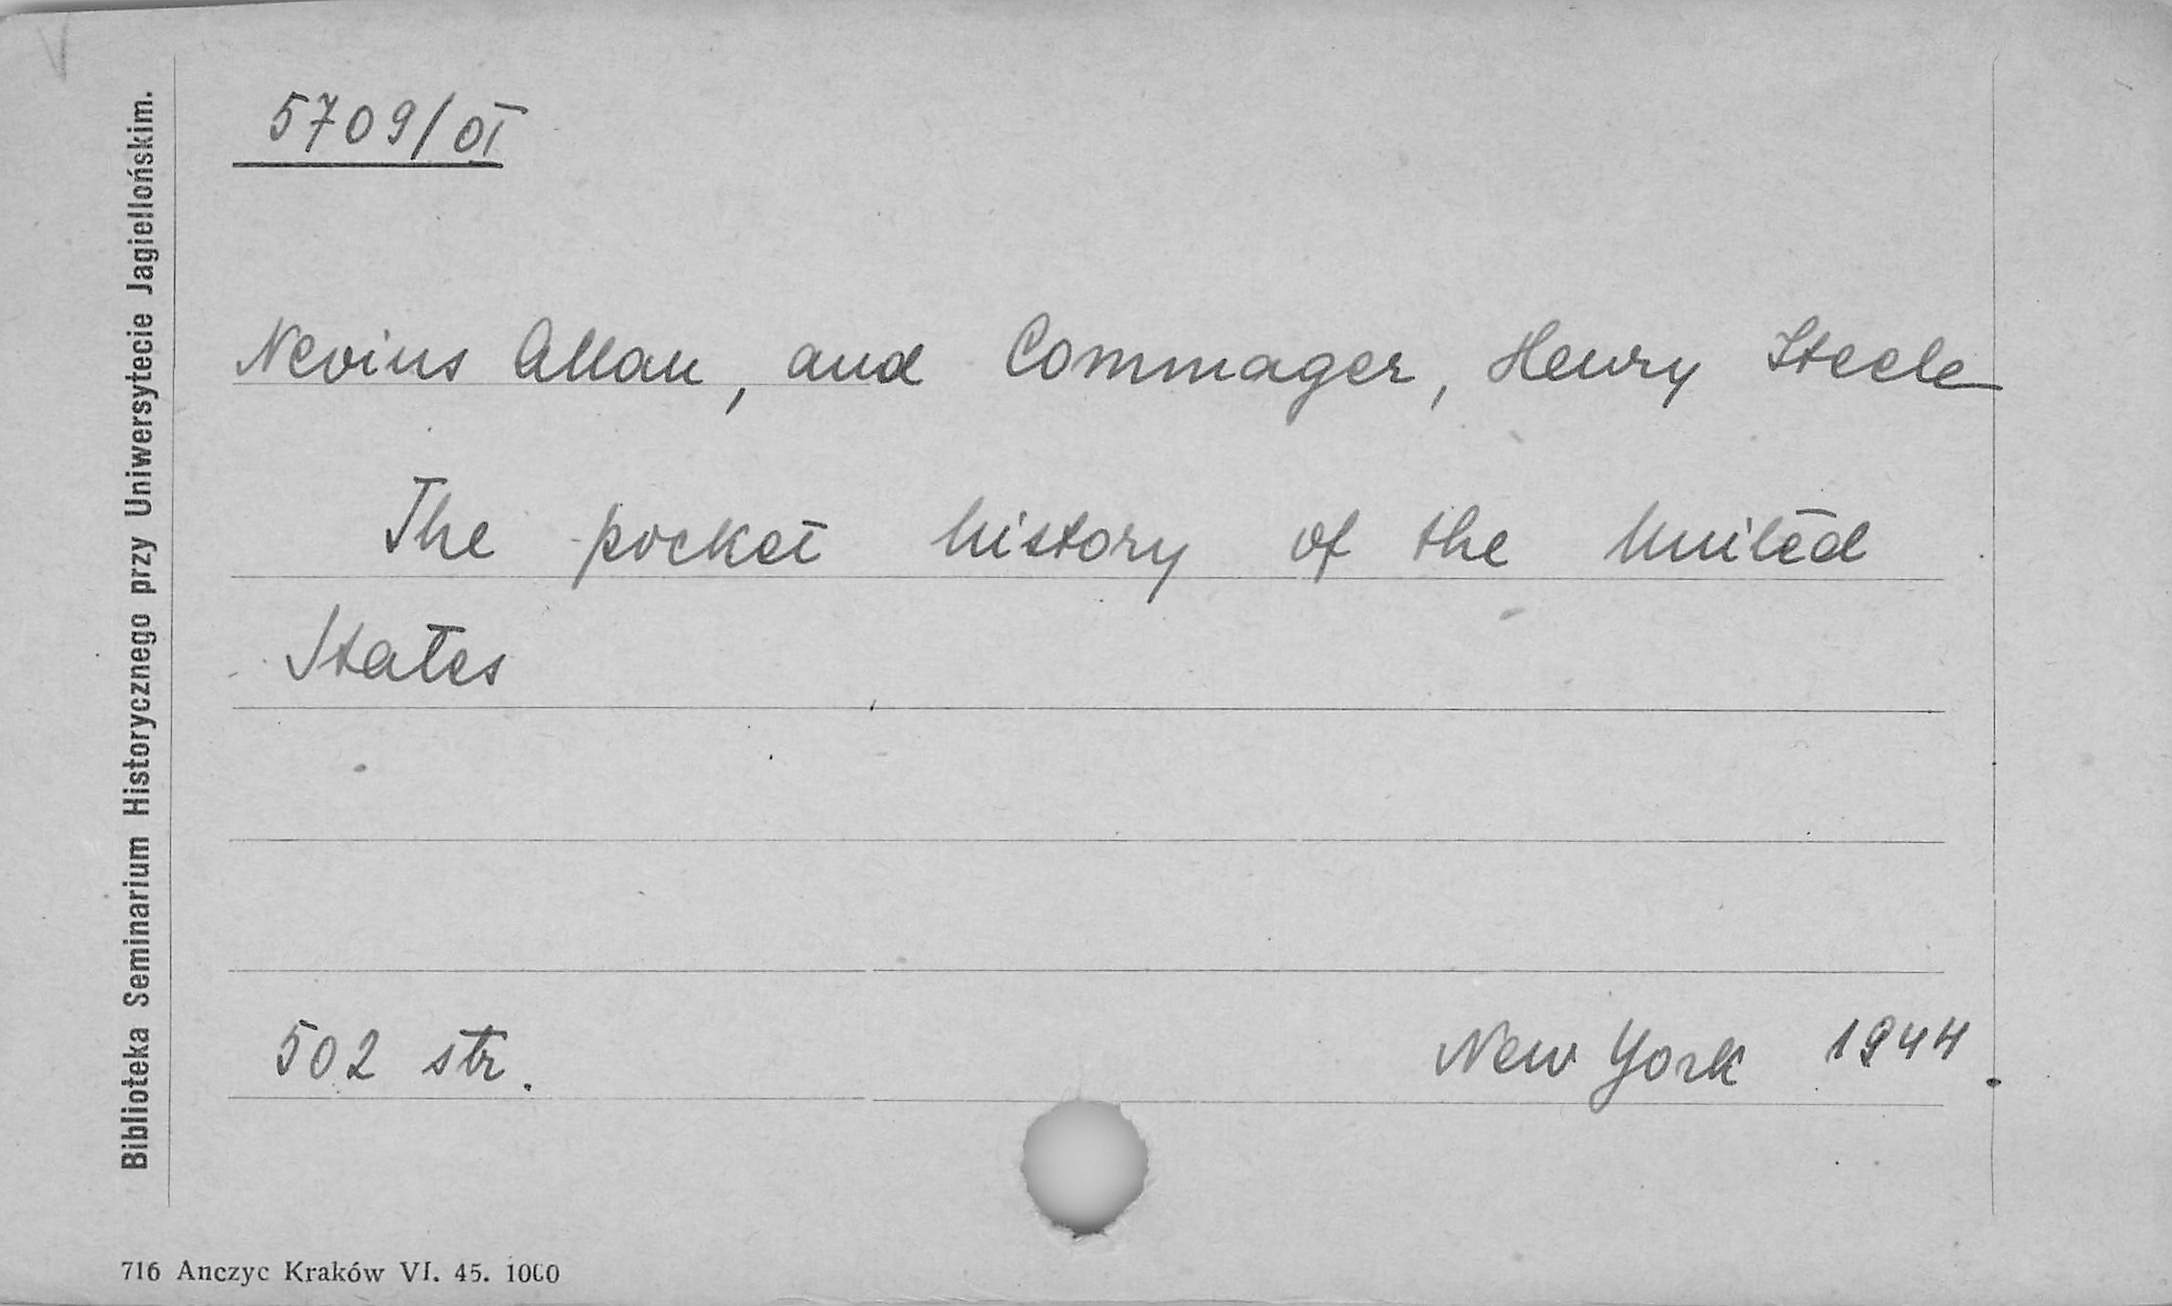 5709/OI
Nevins Allan, and Commager, Henry Steele
The pocket history of the United
States
502 str.
New York 1944
Biblioteka Seminarium Historycznego przy Uniwersytecie Jagiellońskim.
716 Anczyc Kraków VI. 45. 1000